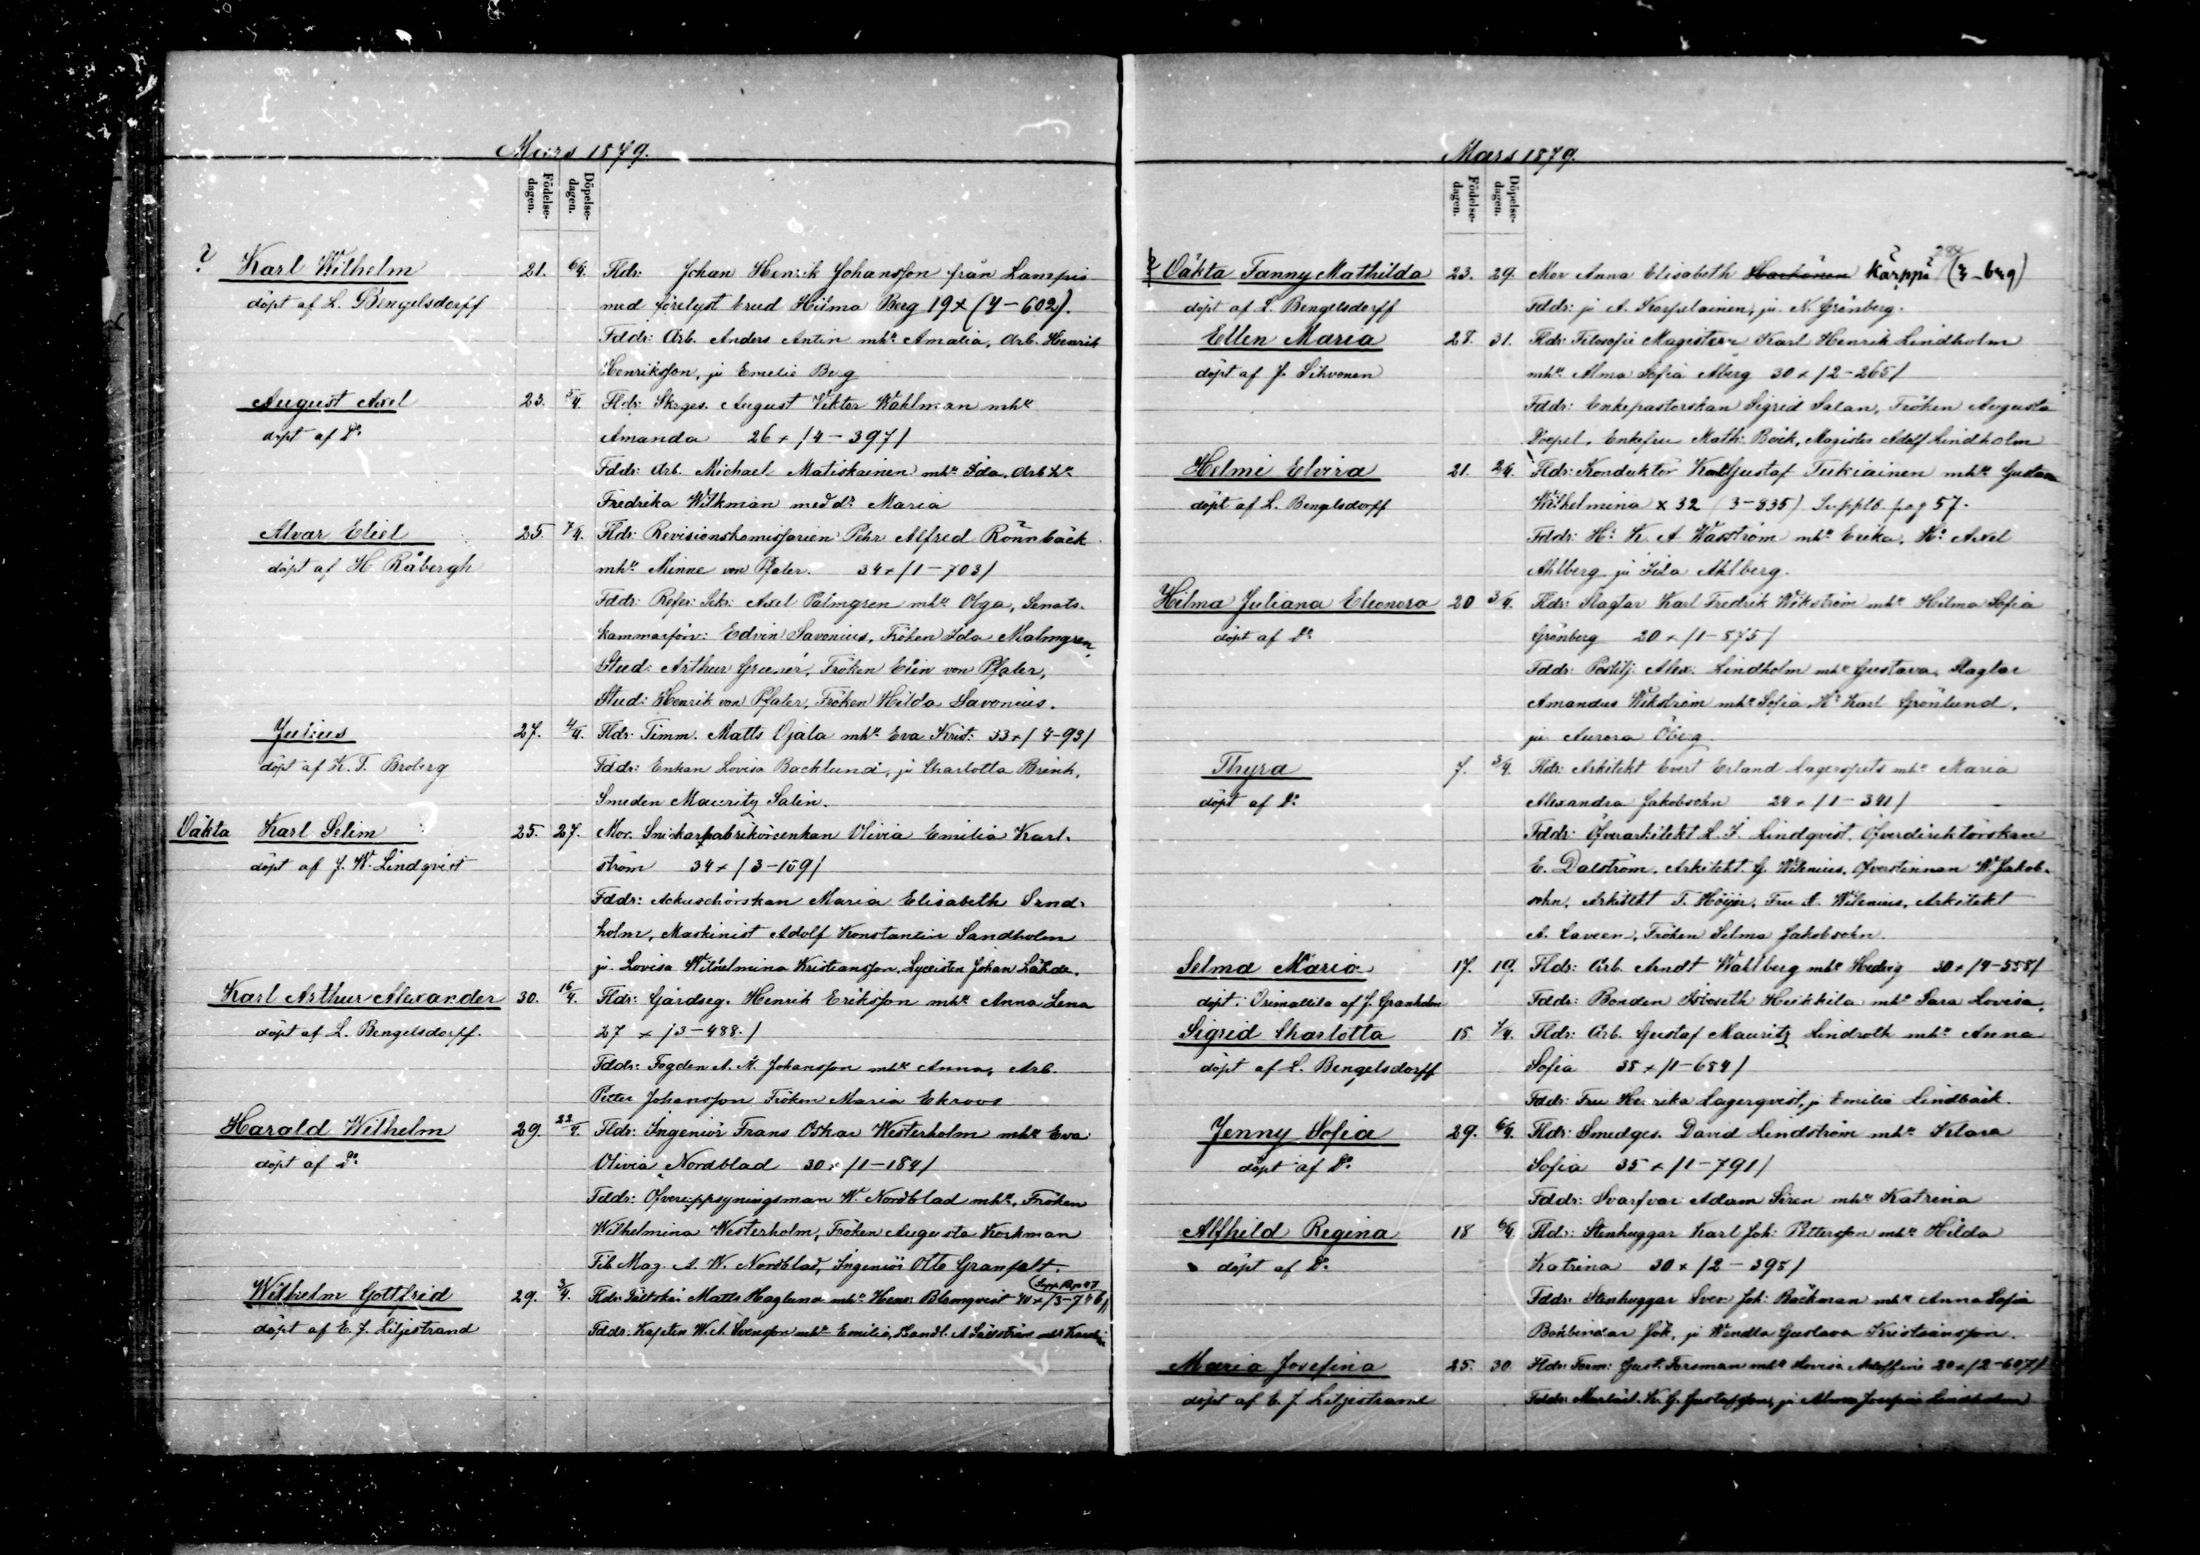 Mars 1879.
Födelse-dagen.
Döpelse-dagen.
? Karl Wilhelm 21. 6/4. Fldr: Johan Henrik Johansson från Lampis
döpt af L. Bengelsdorff med förelyst brud Hilma Berg 19 x (4-602).
Fddr: Arb. Anders Antin mhu Amalia, Arb. Henrik
Henriksson, ju Emelie Berg
August Axel 23. 5/4. Fldr: Skrges. August Viktor Wahlman mhu
döpt af Do Amanda 26 x /4-397/
Fddr: Arb. Michael Matiskainen mhu Ida, Arb. hu
Fredrika Wilkman med dr Maria
Alvar Eliel 25. 7/4. Fldr: Revisionskomissarien Pehr Alfred Rönnbäck
döpt af H Råbergh mhu Minne von Pfaler. 34 x /1-703/
Fddr: Refer: Sekr: Axel Palmgren mhu Olga, Senats-
kammarförv: Edvin Savonius, Fröken Ida Malmgren,
Stud: Arthur Fröken Elin von Pfaler,
Stud: Henrik von Pfaler, Fröken Hilda Savonius.
Julius 27. 4/4. Fldr: Timm. Matts Ojala mhu Eva Krist: 33 x /4-93/
döpt af K. T. Broberg Fddr: Enkan Lovisa Backlund, ju Charlotta Brink,
Smeden Mauritz Salin.
Oäkta Karl Selim 25. 27. Mor. Snickarfabrikörsenkan Olivia Emilia Karl-
döpt af J. W. Lindqvist ström 34 x /3-109/
Fddr: Ackuschörskan Maria Elisabeth Sand-
holm, Maskinist Adolf Konstantin Sandholm
ju Lovisa Wilhelmina Kristiansson, Lyceisten Johan Lähde.
Karl Arthur Alexander 30. 16/4. Fldr: Gårdseg. Henrik Eriksson mhu Anna Lena
döpt af L. Bengelsdorff. 27 x /3-488./
Fddr: Fogden A. M. Johansson mhu Anna, Arb.
Petter Johansson Fröken Maria Ekroos
Harald Wilhelm 29. 22/4. Fldr: Ingeniör Frans Oskar Westerholm mhu Eva
döpt af Do Olivia Nordblad 30 x /1-184/
Fddr: Öfveruppsyningsman W. Nordblad mhu, Fröken
Wilhelmina Westerholm, Fröken Augusta Korkman
Fil. Mag. A. W. Nordblad, Ingeniör Otto Granfelt.
Wilhelm Gottfrid 29. 3/4. Fldr: Matts Haglund mhu Henr: Blomqvist 40 x /3-746/
döpt af E. J. Liljestrand Fddr: Kapten W. A. Svensson mhu Emilia, Handl. A mhu
Mars 1879.
Födelse-dagen.
Döpelse-dagen.
? Oäkta Fanny Mathilda 23. 29. Mor Anna Elisabeth Karppi
döpt af L. Bengelsdorff Fddr: ju A. Karpelainen, ju. N. Grönberg.
Ellen Maria 28. 31. Fldr: Filosofie Magistern Karl Henrik Lindholm
döpt af J. Sihvonen mhu Alma Sofia Åberg 30 x /2-265/
Fddr: Enkepastorskan Sigrid Salan, Fröken Augusta
Poppel, Enkefru Math: Böök, Magister Adolf Lindholm
Helmi Elvira 21. 2/4. Fldr: Konduktör Karl Gustaf Tukiainen mhu Gustava
döpt af L. Bengelsdorff Wilhelmina x 32 (3-835) Supplb. pag 57.
Fddr: Hr K. A Wasström mhu Erika, Hr Axel
Ahlberg ju Ida Ahlberg.
Hilma Juliana Eleonora 20 3/4. Fldr: Slagtar Karl Fredrik Wikström mhu Hilma Sofia
döpt af Do Grönberg 20 x /1-575/
Fddr: Postilj: Alex: Lindholm mhu Gustava, Slagtar
Amandus Wikström mhu Sofia, Hr Karl Grönlund,
ju Aurora Öberg.
Thyra 7. 3/4. Fldr: Arkitekt Evert Erland Lagerspets mhu Maria
döpt af Do Alexandra Jakobsohn 24 x /1-341/
Fddr: Öfverarkitekt L. I. Lindqvist, Öfverdirektörskan
E. Dalström, Arkitekt G. Wilenius, Öfverstinnan W. Jakob-
sohn, Arkitekt T. Höijer, Fru A. Wilenius, Arkitekt
A. Caween, Fröken Selma Jakobsohn.
Selma Maria 17. 19. Fldr: Arb. Arndt Wahlberg mhu Hedvig 30 x /4-558/
döpt i Orimattila af J. Granholm Fddr: Bonden Heikkilä mhu Sara Lovisa.
Sigrid Charlotta 18. 4/4. Fldr: Arb. Gustaf Mauritz Lindroth mhu Anna
döpt af L. Bengelsdorff Sofia 38 x /1-684/
Fddr: Fru Henrika Lagerqvist, ju Emilia Lindbäck.
Jenny Sofia 29. 6/4. Fldr: Smedges. David Lindström mhu Klara
döpt af Do Sofia 35 x /1-791/
Fddr: Svarfvar Adam Siren mhu Katrina
Alfhild Regina 18 6/4. Fldr: Stenhuggar Karl Joh: Pettersson mhu Hilda
döpt af Do Katrina 30 x /2-398/
Fddr: Stenhuggar Sven Joh: Bäckman mhu Anna Sofia
Bokbindar ju Wendla Gustava Kristiansson.
Maria Josefina 25. 30. Fldr: Form: Gust. Forsman mhu Lovisa 20 x /2-607/
döpt af E. J. Liljestrand Fddr: K. G. Gustafsson, ju Alma Josefina Lindholm